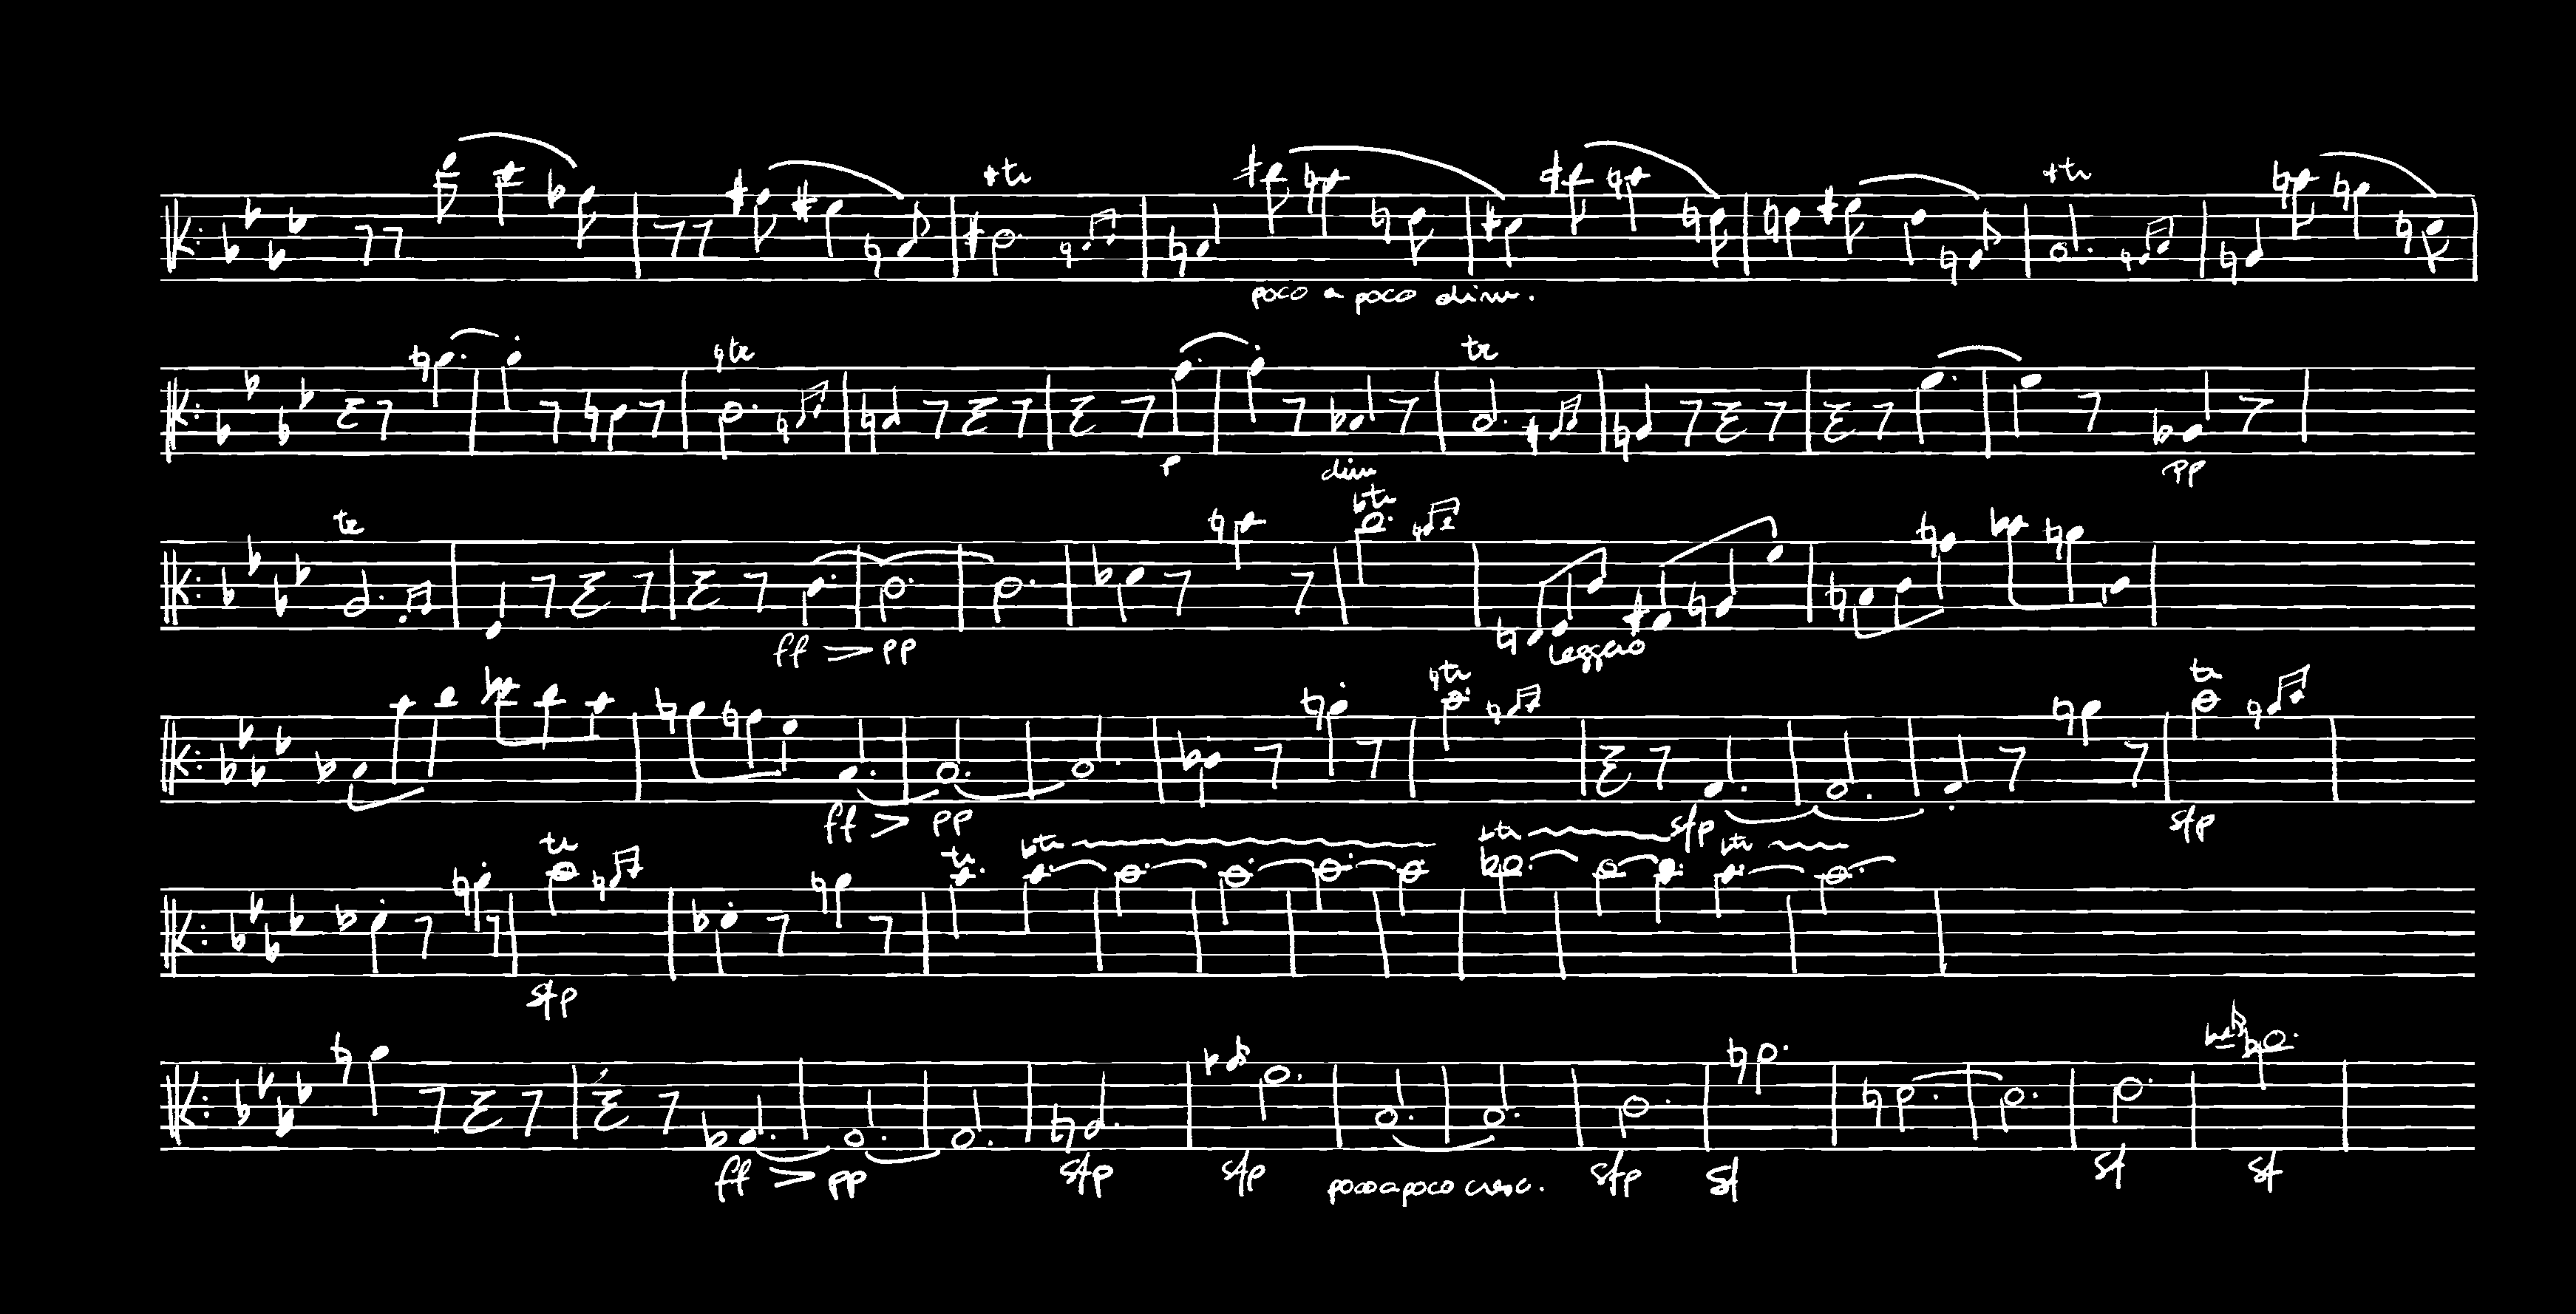 tr
poco a poco dim.
tr
tr
tr
p
dim
pp
tr
tr
ff > pp
leggero
tr
tr
ff > pp
sfp
sfp
tr
tr
tr
tr
tr
sfp
ff > pp
sfp
sfp
poco a poco cresc.
sfp
sf
sf
sf